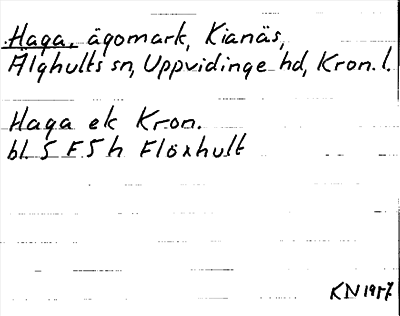 Haga, ägomark, Kianäs,
Älghults sn, Uppvidinge hd, Kron. l.
Haga ek Kron.
bl. 5 F 5 h Flöxhult
KN 1957